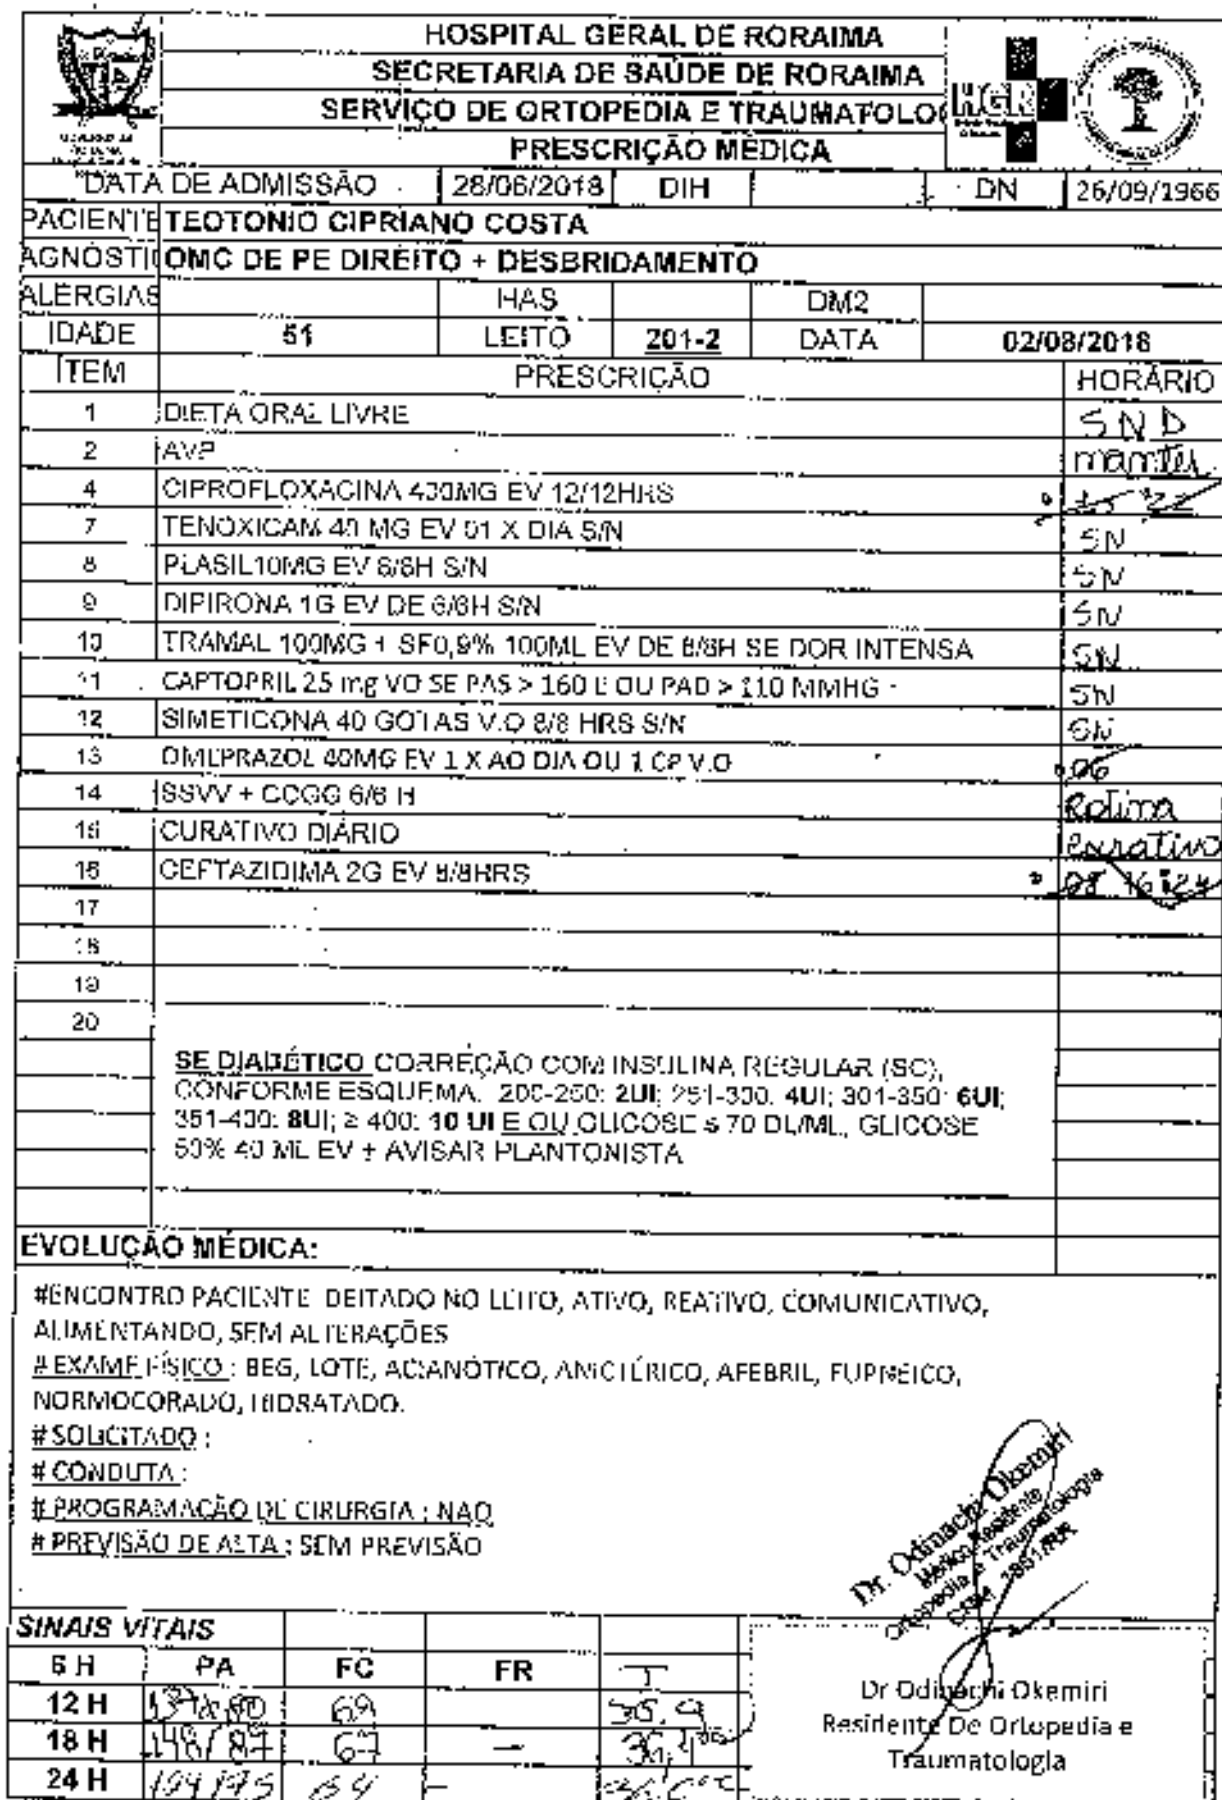 HOSPITAL GERAL DE RORAIMA
SECRETARIA DE SAÚDE DE RORAIMA
SERVIÇO DE ORTOPEDIA E TRAUMATOLO
HGR
PRESCRIÇÃO MÉDICA
DATA DE ADMISSÃO 28/06/2018 DIH DN 26/09/1966
PACIENTE TEOTONIO CIPRIANO COSTA
AGNÓSTI OMC DE PE DIREITO + DESBRIDAMENTO
ALERGIAS HAS DM2
IDADE 51 LEITO 201-2 DATA 02/08/2018
ITEM PRESCRIÇÃO HORÁRIO
1 DIETA ORAL LIVRE SND
2 AVP manter
4 CIPROFLOXACINA 400MG EV 12/12HRS
7 TENOXICAM 40 MG EV 01 X DIA S/N SN
8 PLASIL 10MG EV 8/8H S/N SN
9 DIPIRONA 1G EV DE 6/6H S/N SN
10 TRAMAL 100MG + SF0,9% 100ML EV DE 8/8H SE DOR INTENSA SN
11 CAPTOPRIL 25 mg VO SE PAS > 160 E OU PAD > 110 MMHG SN
12 SIMETICONA 40 GOTAS V.O 8/8 HRS S/N SN
13 OMEPRAZOL 40MG EV 1 X AO DIA OU 1 CP V.O 06
14 SSVV + CCGG 6/6 H Rotina
15 CURATIVO DIÁRIO curativo
16 CEFTAZIDIMA 2G EV 8/8HRS 08 16 24
17
18
19
20
SE DIABÉTICO CORREÇÃO COM INSULINA REGULAR (SC),
CONFORME ESQUEMA. 200-250: 2UI; 251-300: 4UI; 301-350: 6UI;
351-400: 8UI; ≥ 400: 10 UI E OU GLICOSE ≤ 70 DL/ML, GLICOSE
50% 40 ML EV + AVISAR PLANTONISTA
EVOLUÇÃO MÉDICA:
#ENCONTRO PACIENTE DEITADO NO LEITO, ATIVO, REATIVO, COMUNICATIVO,
ALIMENTANDO, SEM ALTERAÇÕES
# EXAME FÍSICO : BEG, LOTE, ACIANÓTICO, ANICTÉRICO, AFEBRIL, EUPNEICO,
NORMOCORADO, HIDRATADO.
# SOLICITADO :
# CONDUTA :
# PROGRAMAÇÃO DE CIRURGIA : NAO
# PREVISÃO DE ALTA : SEM PREVISÃO
Dr. Odinachi Okemiri
Médico Residente
Ortopedia e Traumatologia
SINAIS VITAIS
6 H PA FC FR T
12 H 137x80 69
18 H 148/87 67 —
24 H
Dr Odinachi Okemiri
Residente De Ortopedia e
Traumatologia